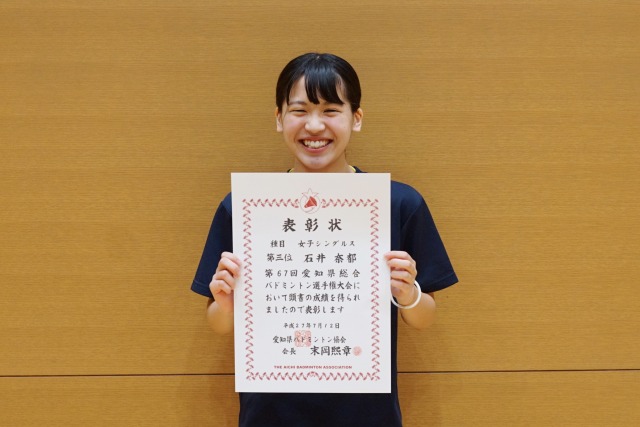 表彰状
種目 女子シングルス
第三位 石井 奈都
第67回愛知県総合
バドミントン選手権大会に
おいて頭書の成績を得られ
ましたので表彰します
平成27年7月12日
愛知県バドミントン協会
会長 末岡熙章
THE AICHI BADMINTON ASSOCIATION